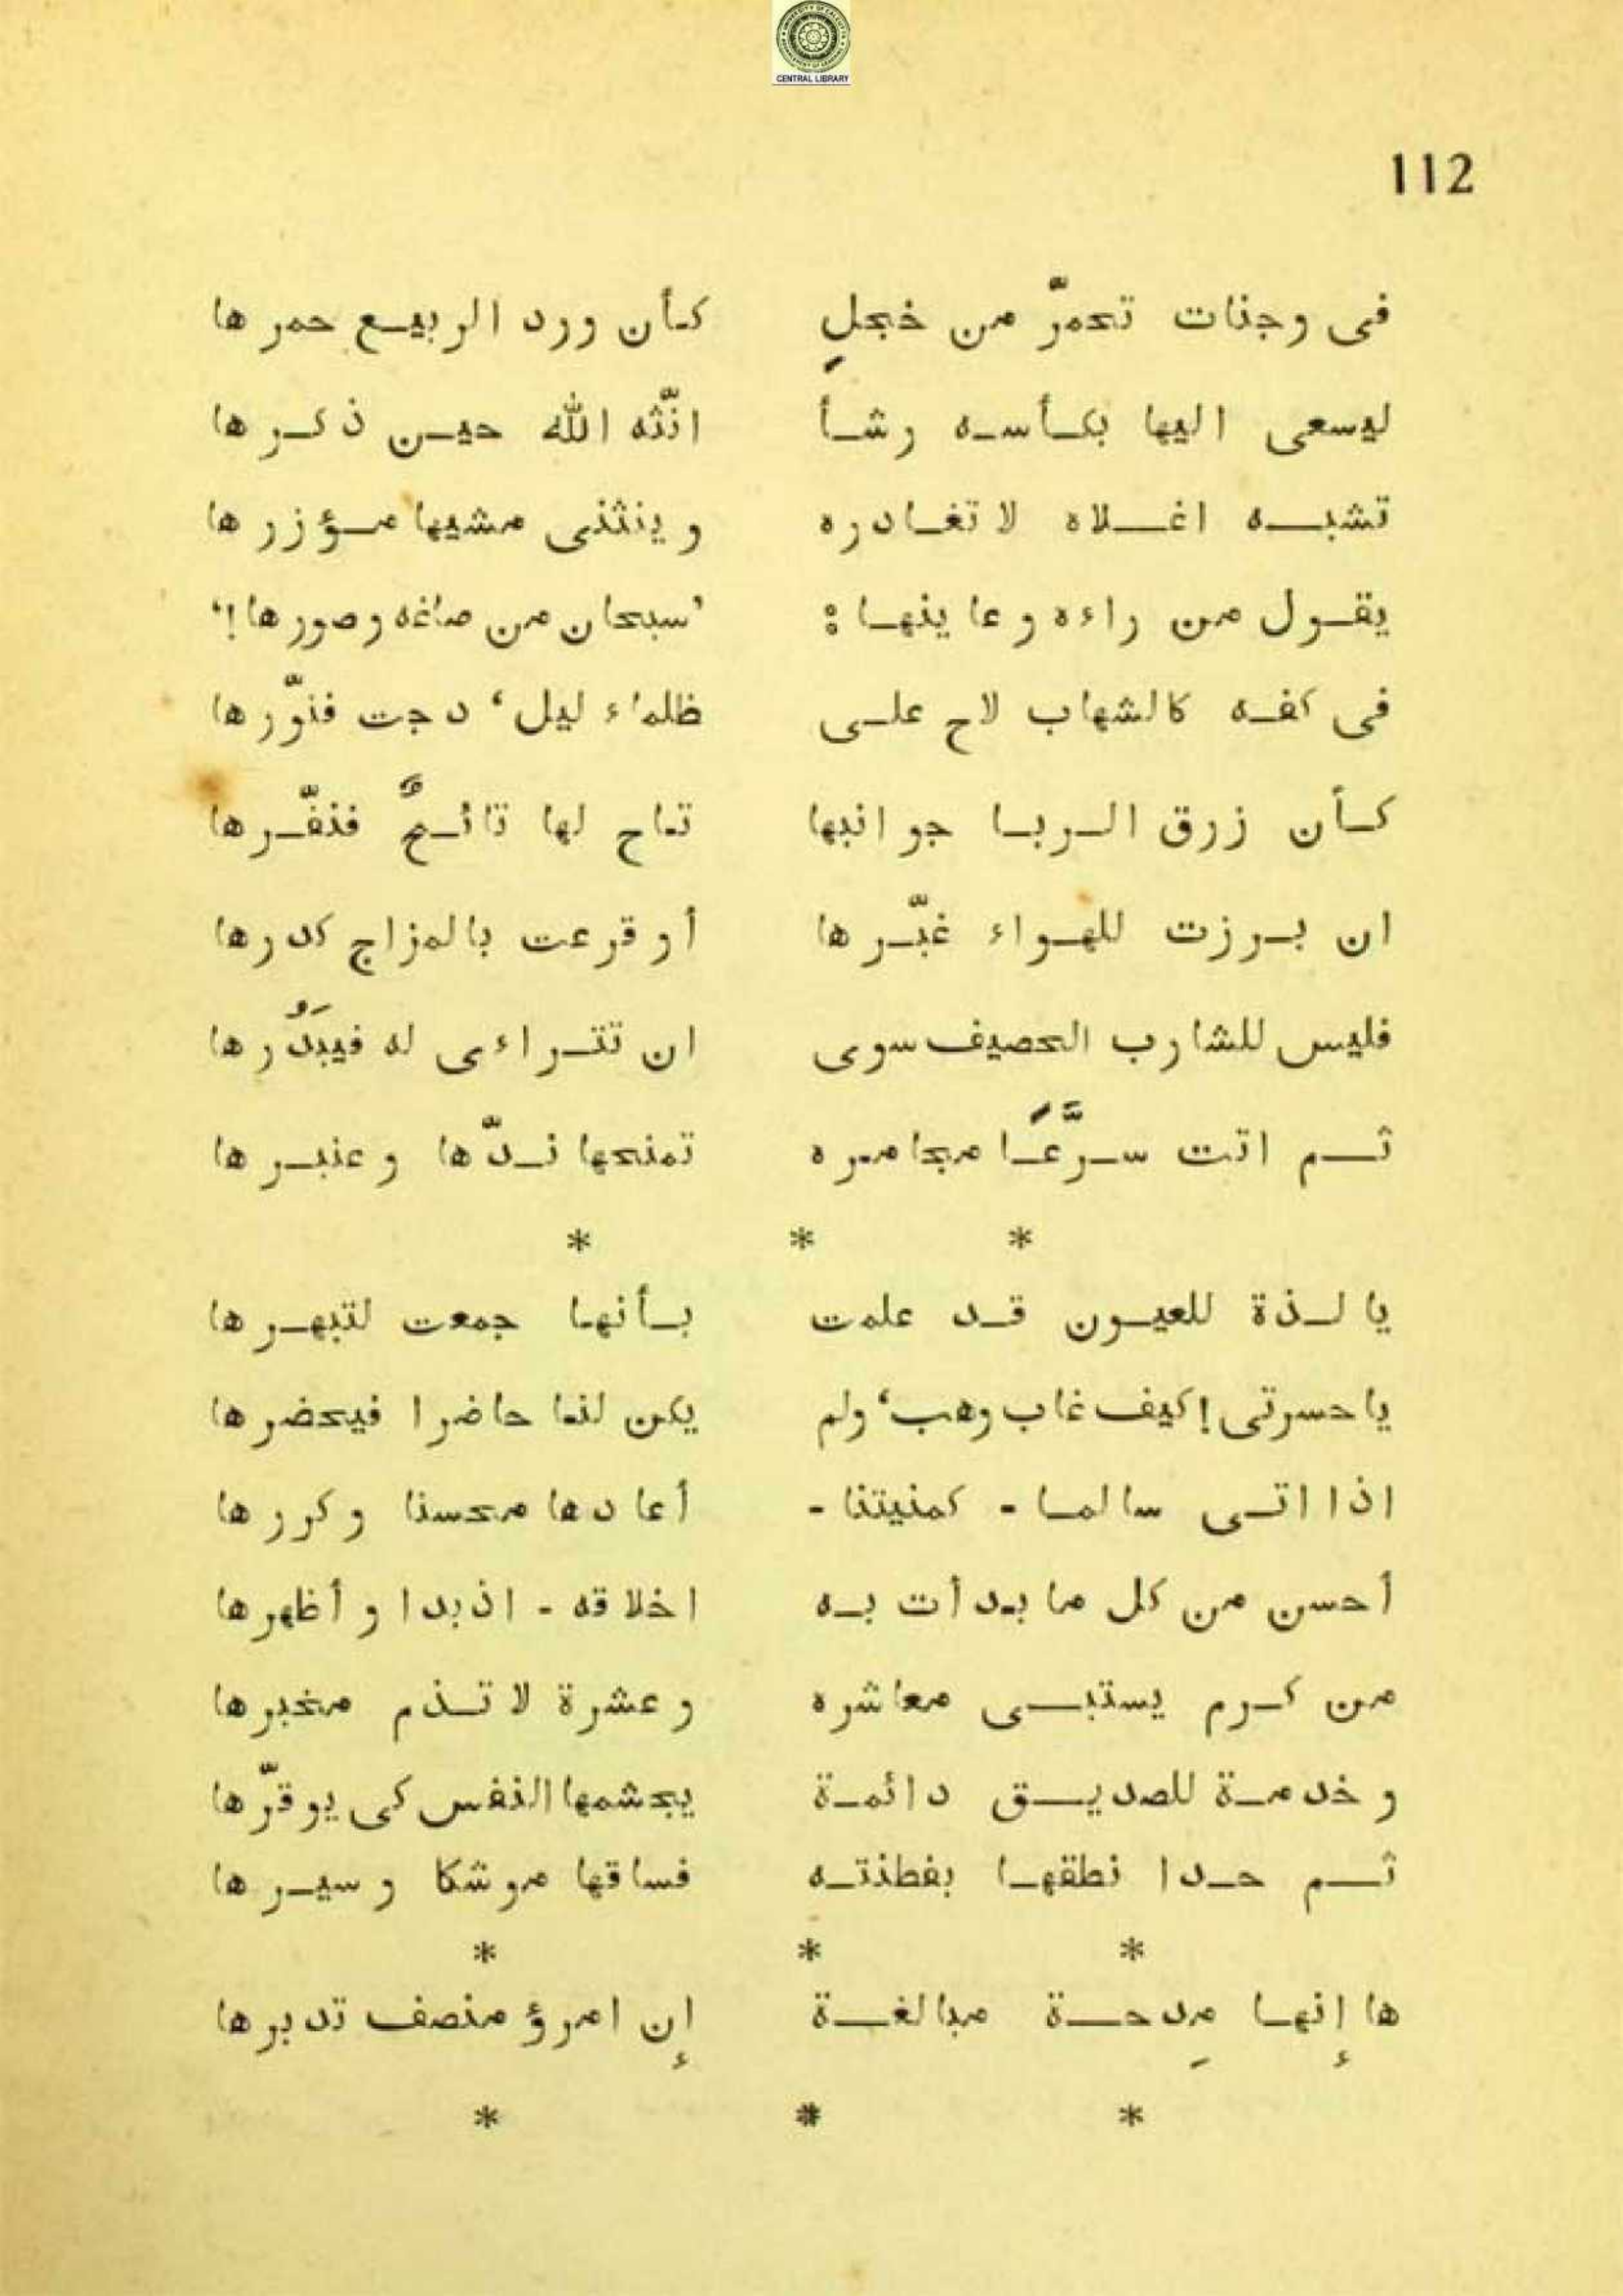 CENTRAL LIBRARY
112
فى وجنات تحمرّ من خجلٍ كأن ورد الربيع حمرها
ليسعى اليها بكأسه رشأ انّثه الله حين ذكرها
تشبه اغلاه لا تغادره وينثنى مشيها مؤزرها
يقول من راءه وعاينها : ’سبحان من صاغه وصورها !‘
فى كفه كالشهاب لاح على ظلماء ليل‘ دجت فنوّرها
كأن زرق الربا جوانبها تاح لها تائحٌ فنفّرها
ان برزت للهواء غبّرها أو قرعت بالمزاج كدرها
فليس للشارب الحصيف سوى ان تتراءى له فيبدُرها
ثم اتت سرَّعًا مجامره تمنحها ندّها وعنبرها
* * *
يا لذة للعيون قد علمت بأنها جمعت لتبهرها
يا حسرتى ! كيف غاب وهب‘ ولم يكن لنا حاضرا فيحضرها
اذا اتى سالما - كمنيتنا - أعادها محسنا وكررها
أحسن من كل ما بدأت به اخلاقه - اذ بدا وأظهرها
من كرم يستبى معاشره وعشرة لا تذم مخبرها
وخدمة للصديق دائمة يجشمها النفس كى يوقرّها
ثم حدا نطقها بفطنته فساقها موشكا وسيرها
* * *
ها إنها مِدحة مبالغة إن امرؤ منصف تدبرها
* * *